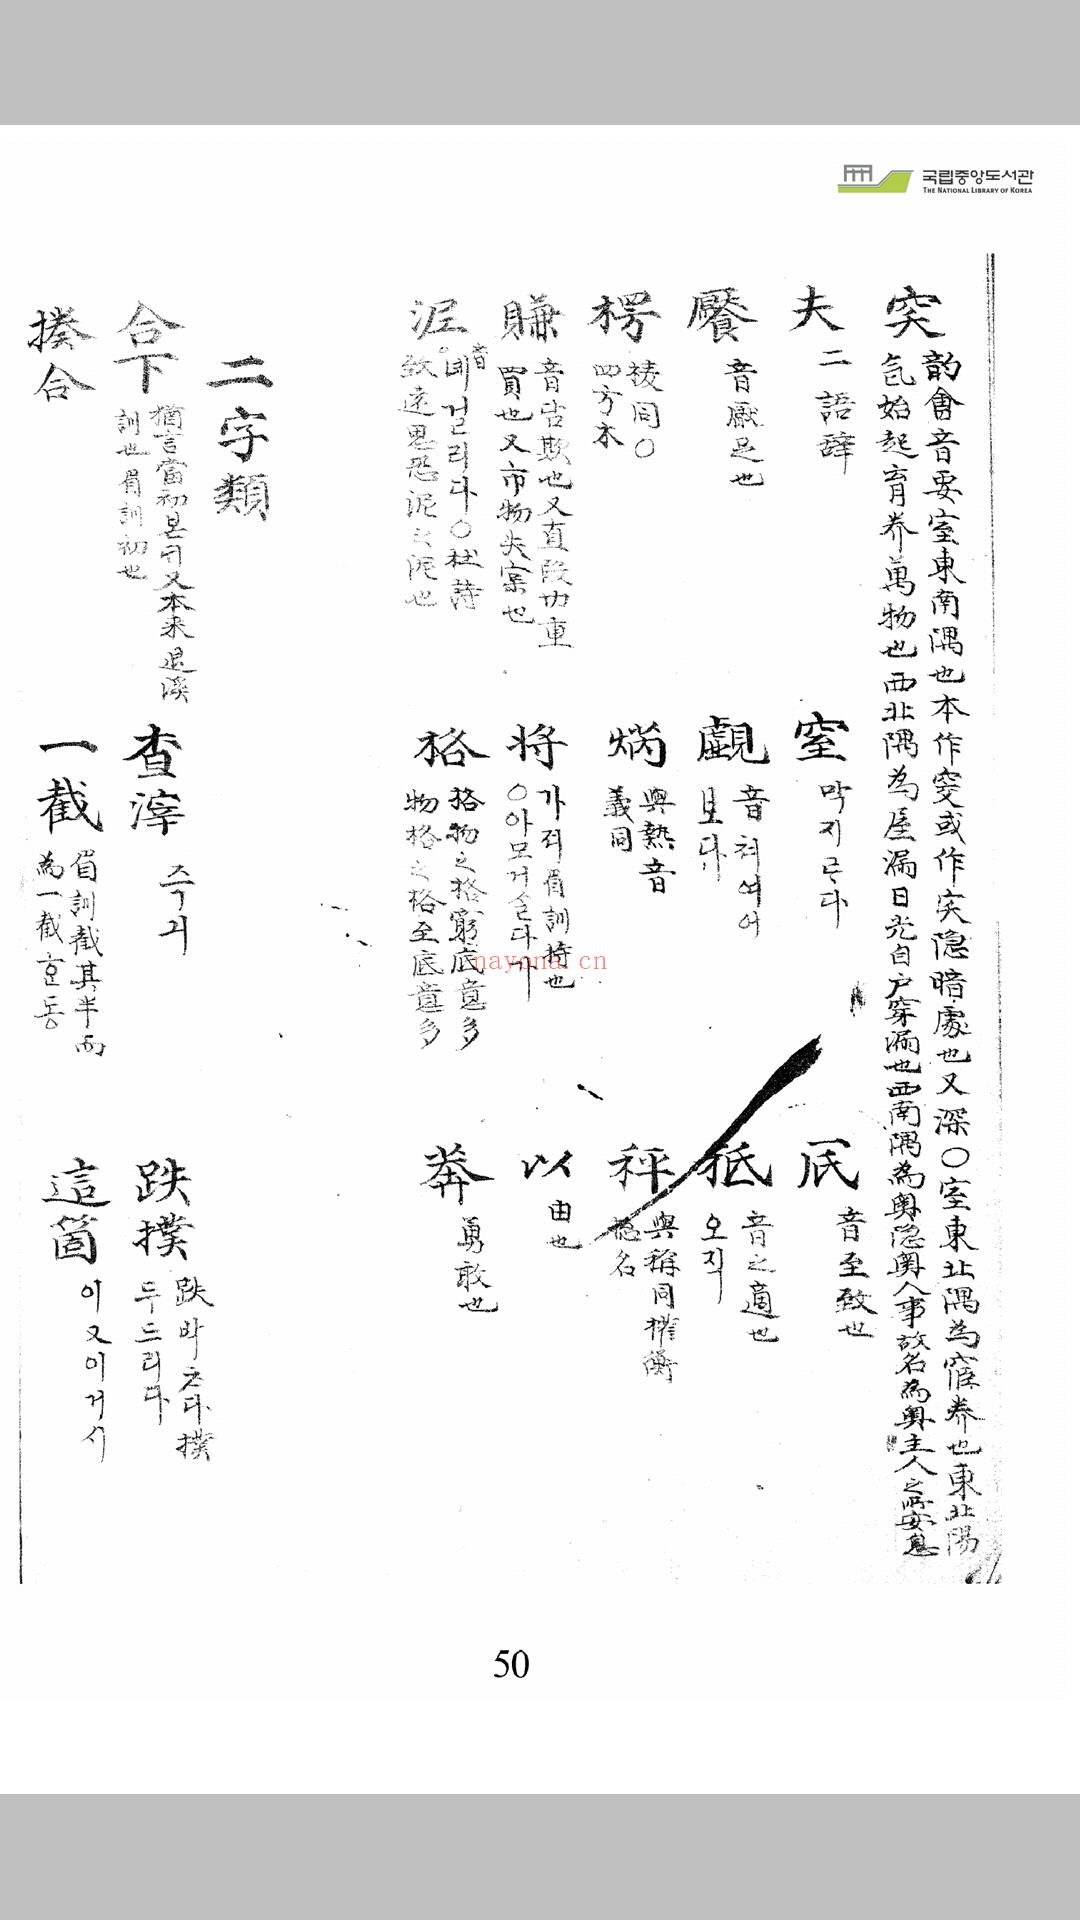 국립중앙도서관
THE NATIONAL LIBRARY OF KOREA
突
韵會音要室東南隅也本作窔或作宎隐暗處也又深〇室東北隅為宧养也東北陽
氣始起育养萬物也西北隅為屋漏日光自户穿漏也西南隅為奥隐奥人事故名為奥主人之所安息
夫
二語辞
窒
막지르다
厎
音至致也
饜
音厭足也
覰
音쳐여어
보다
秪
音之適也
오직
楞
稜同〇
四方木
焫
與熱音
義同
秤
與稱同權衡
総名
賺
音占欺也又直陷切重
買也又市物失实也
将
가져眉訓持也
〇아모거슬다가
以
由也
泥
音네걸리다〇杜詩
致遠思恐泥之泥也
格
格物之格窮底意多
物格之格至底意多
莽
勇敢也
二字類
合下
猶言當初본듸又本來退溪
訓也眉訓初也
查滓
즉긔
跌撲
跌바초다撲
두드리다
揍合
一截
眉訓截其半而
為一截호동
這箇
이又이거시
nayona.cn
50